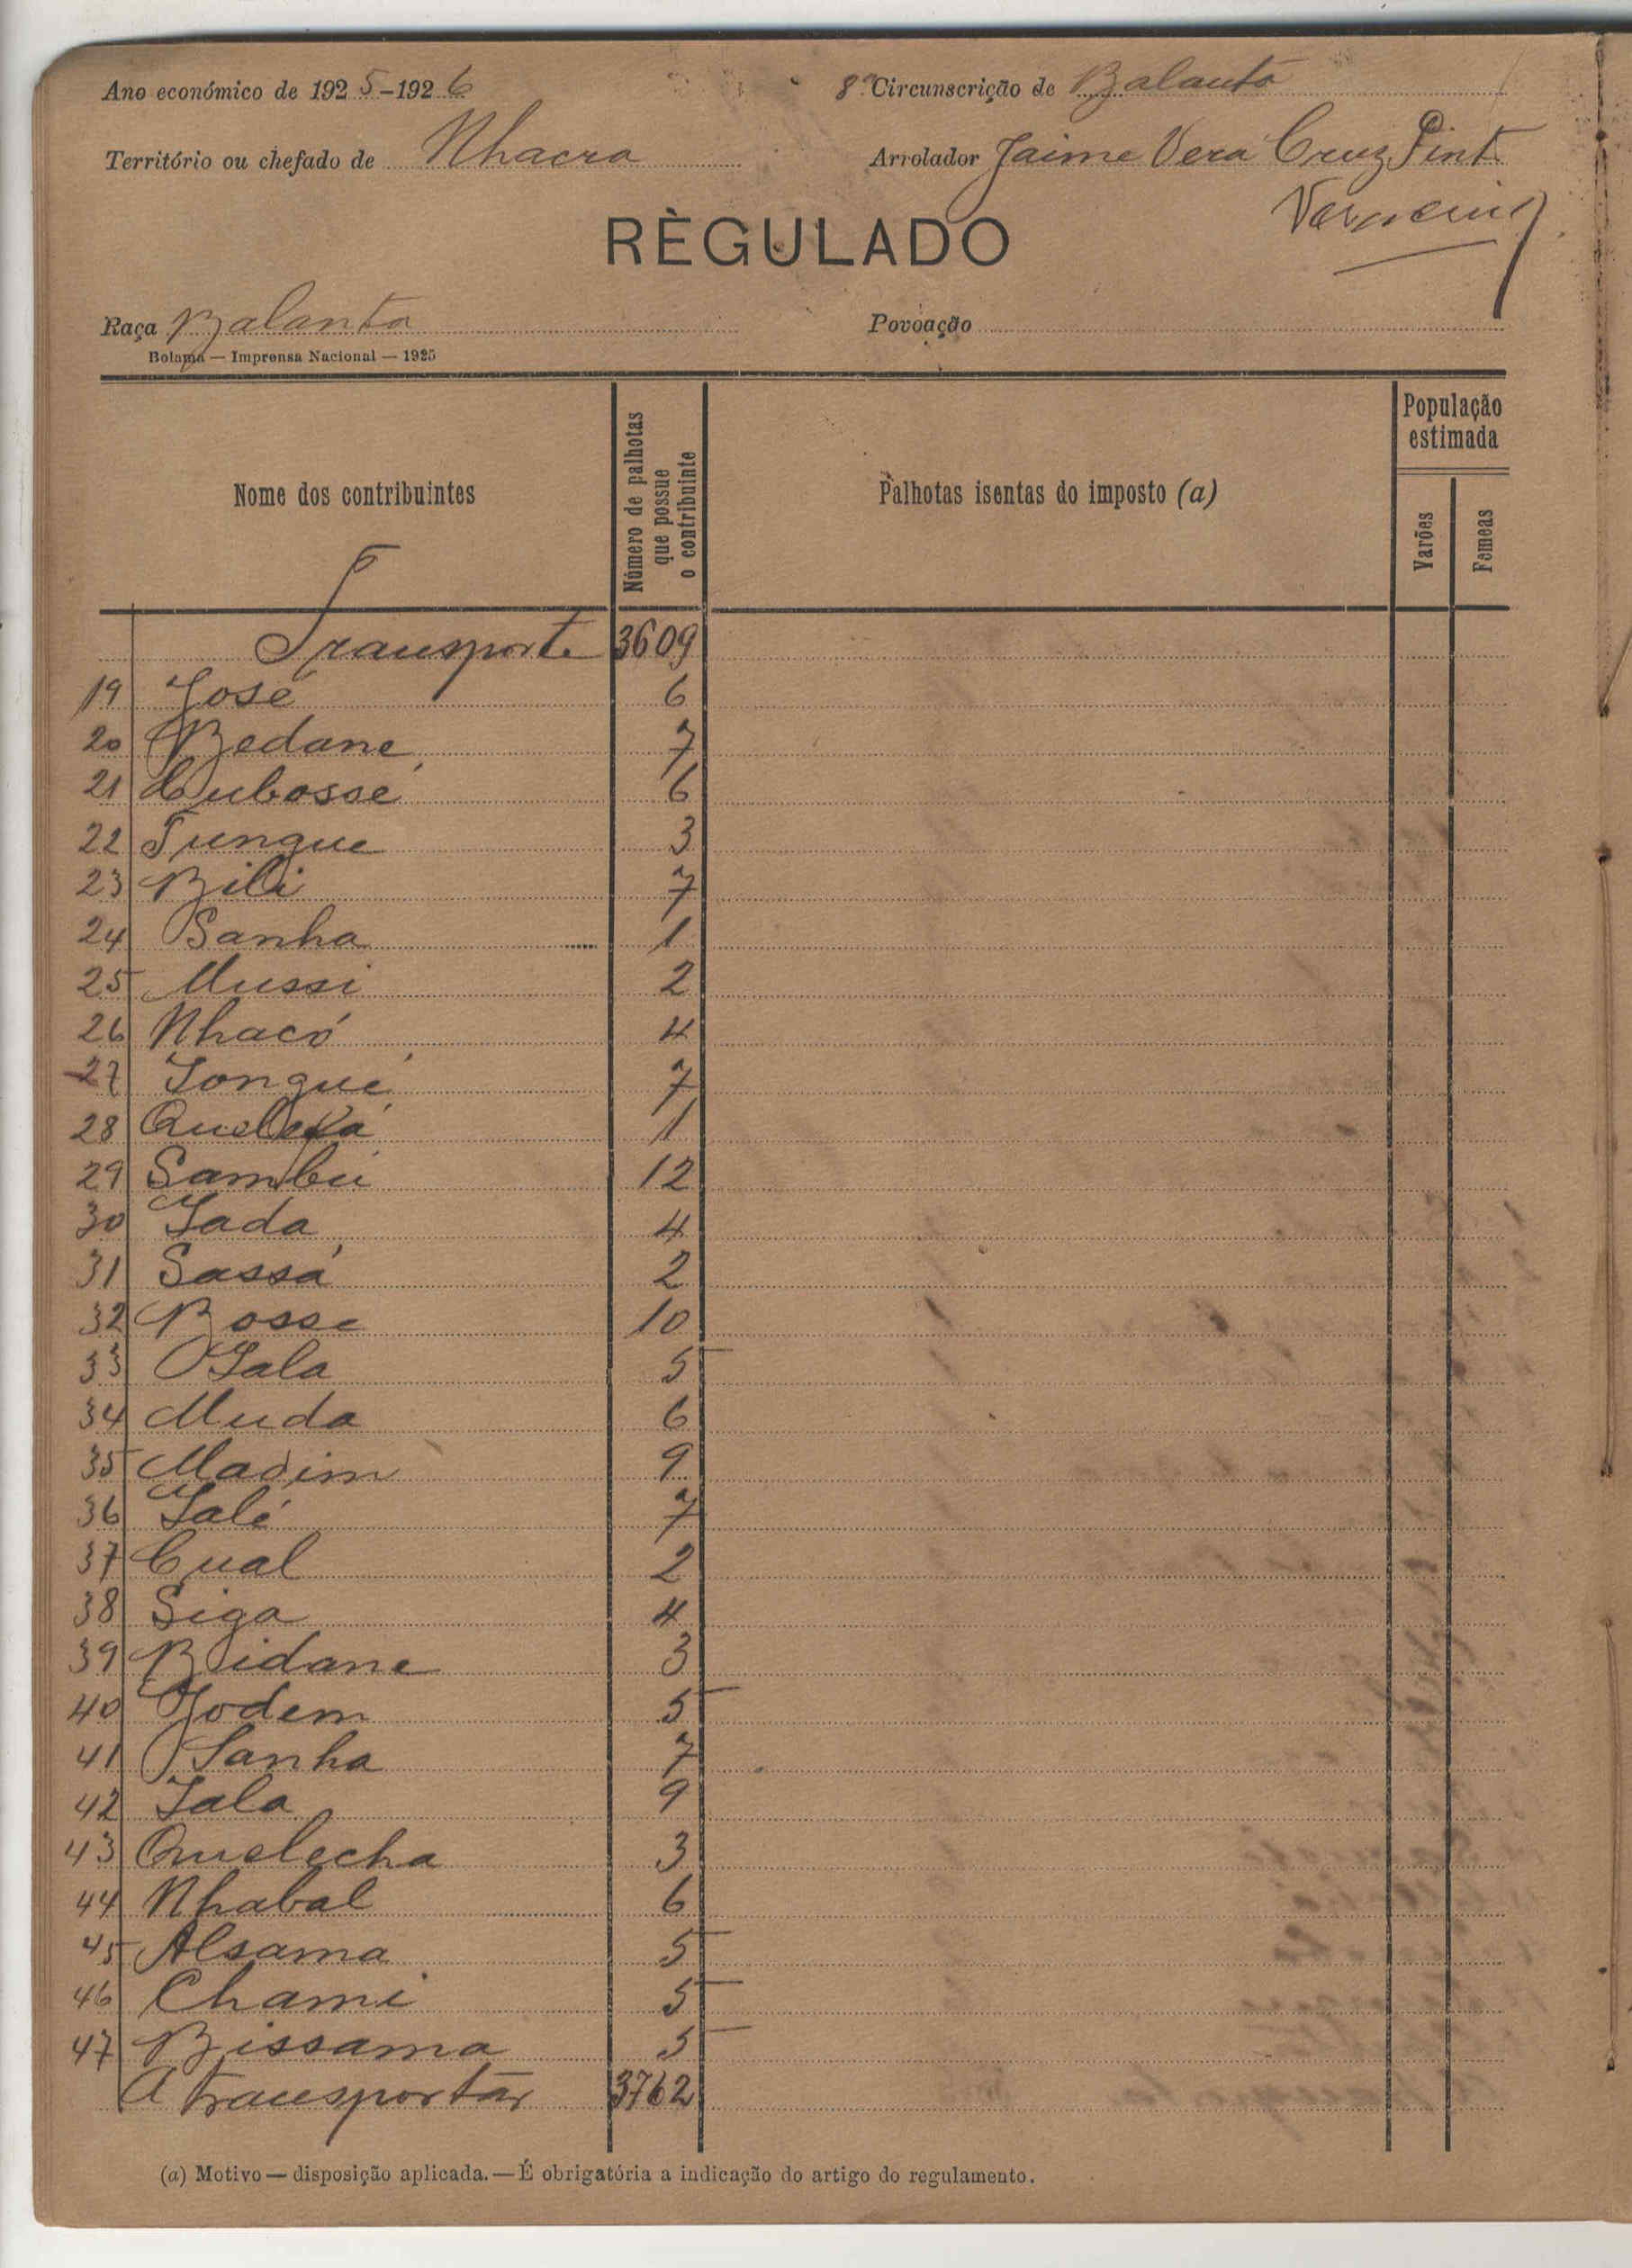 Ano económico de 1925-1926
8ª Circunscrição de Balanta
Território ou chefado de Nhacra
Arrolador Jaime Vera Cruz Pint.
RÈGULADO
Raça Balanta
Povoação
Bolama — Imprensa Nacional — 1925
Nome dos contribuintes
Número de palhotas que possue o contribuinte
Palhotas isentas do imposto (a)
População estimada
Varões
Femeas
Transporte 3609
19 José 6
20 Bedane 7
21 Cubossé 6
22 Tungue 3
23 Bili 7
24 Sanha 1
25 Mussi 2
26 Nhacó 4
27 Tongué 7
28 1
29 Sambú 12
30 Iada 4
31 Sassá 2
32 Bosse 10
33 Iala 5
34 Muda 6
35 Madim 9
36 Ialé 7
37 Cual 2
38 Siga 4
39 Bidane 3
40 Jodem 5
41 Sanha 7
42 Iala 9
43 Quelecha 3
44 Nhabal 6
45 Alsama 5
46 Chami 5
47 Bissama 5
A transportar 3762
(a) Motivo — disposição aplicada. — É obrigatória a indicação do artigo do regulamento.